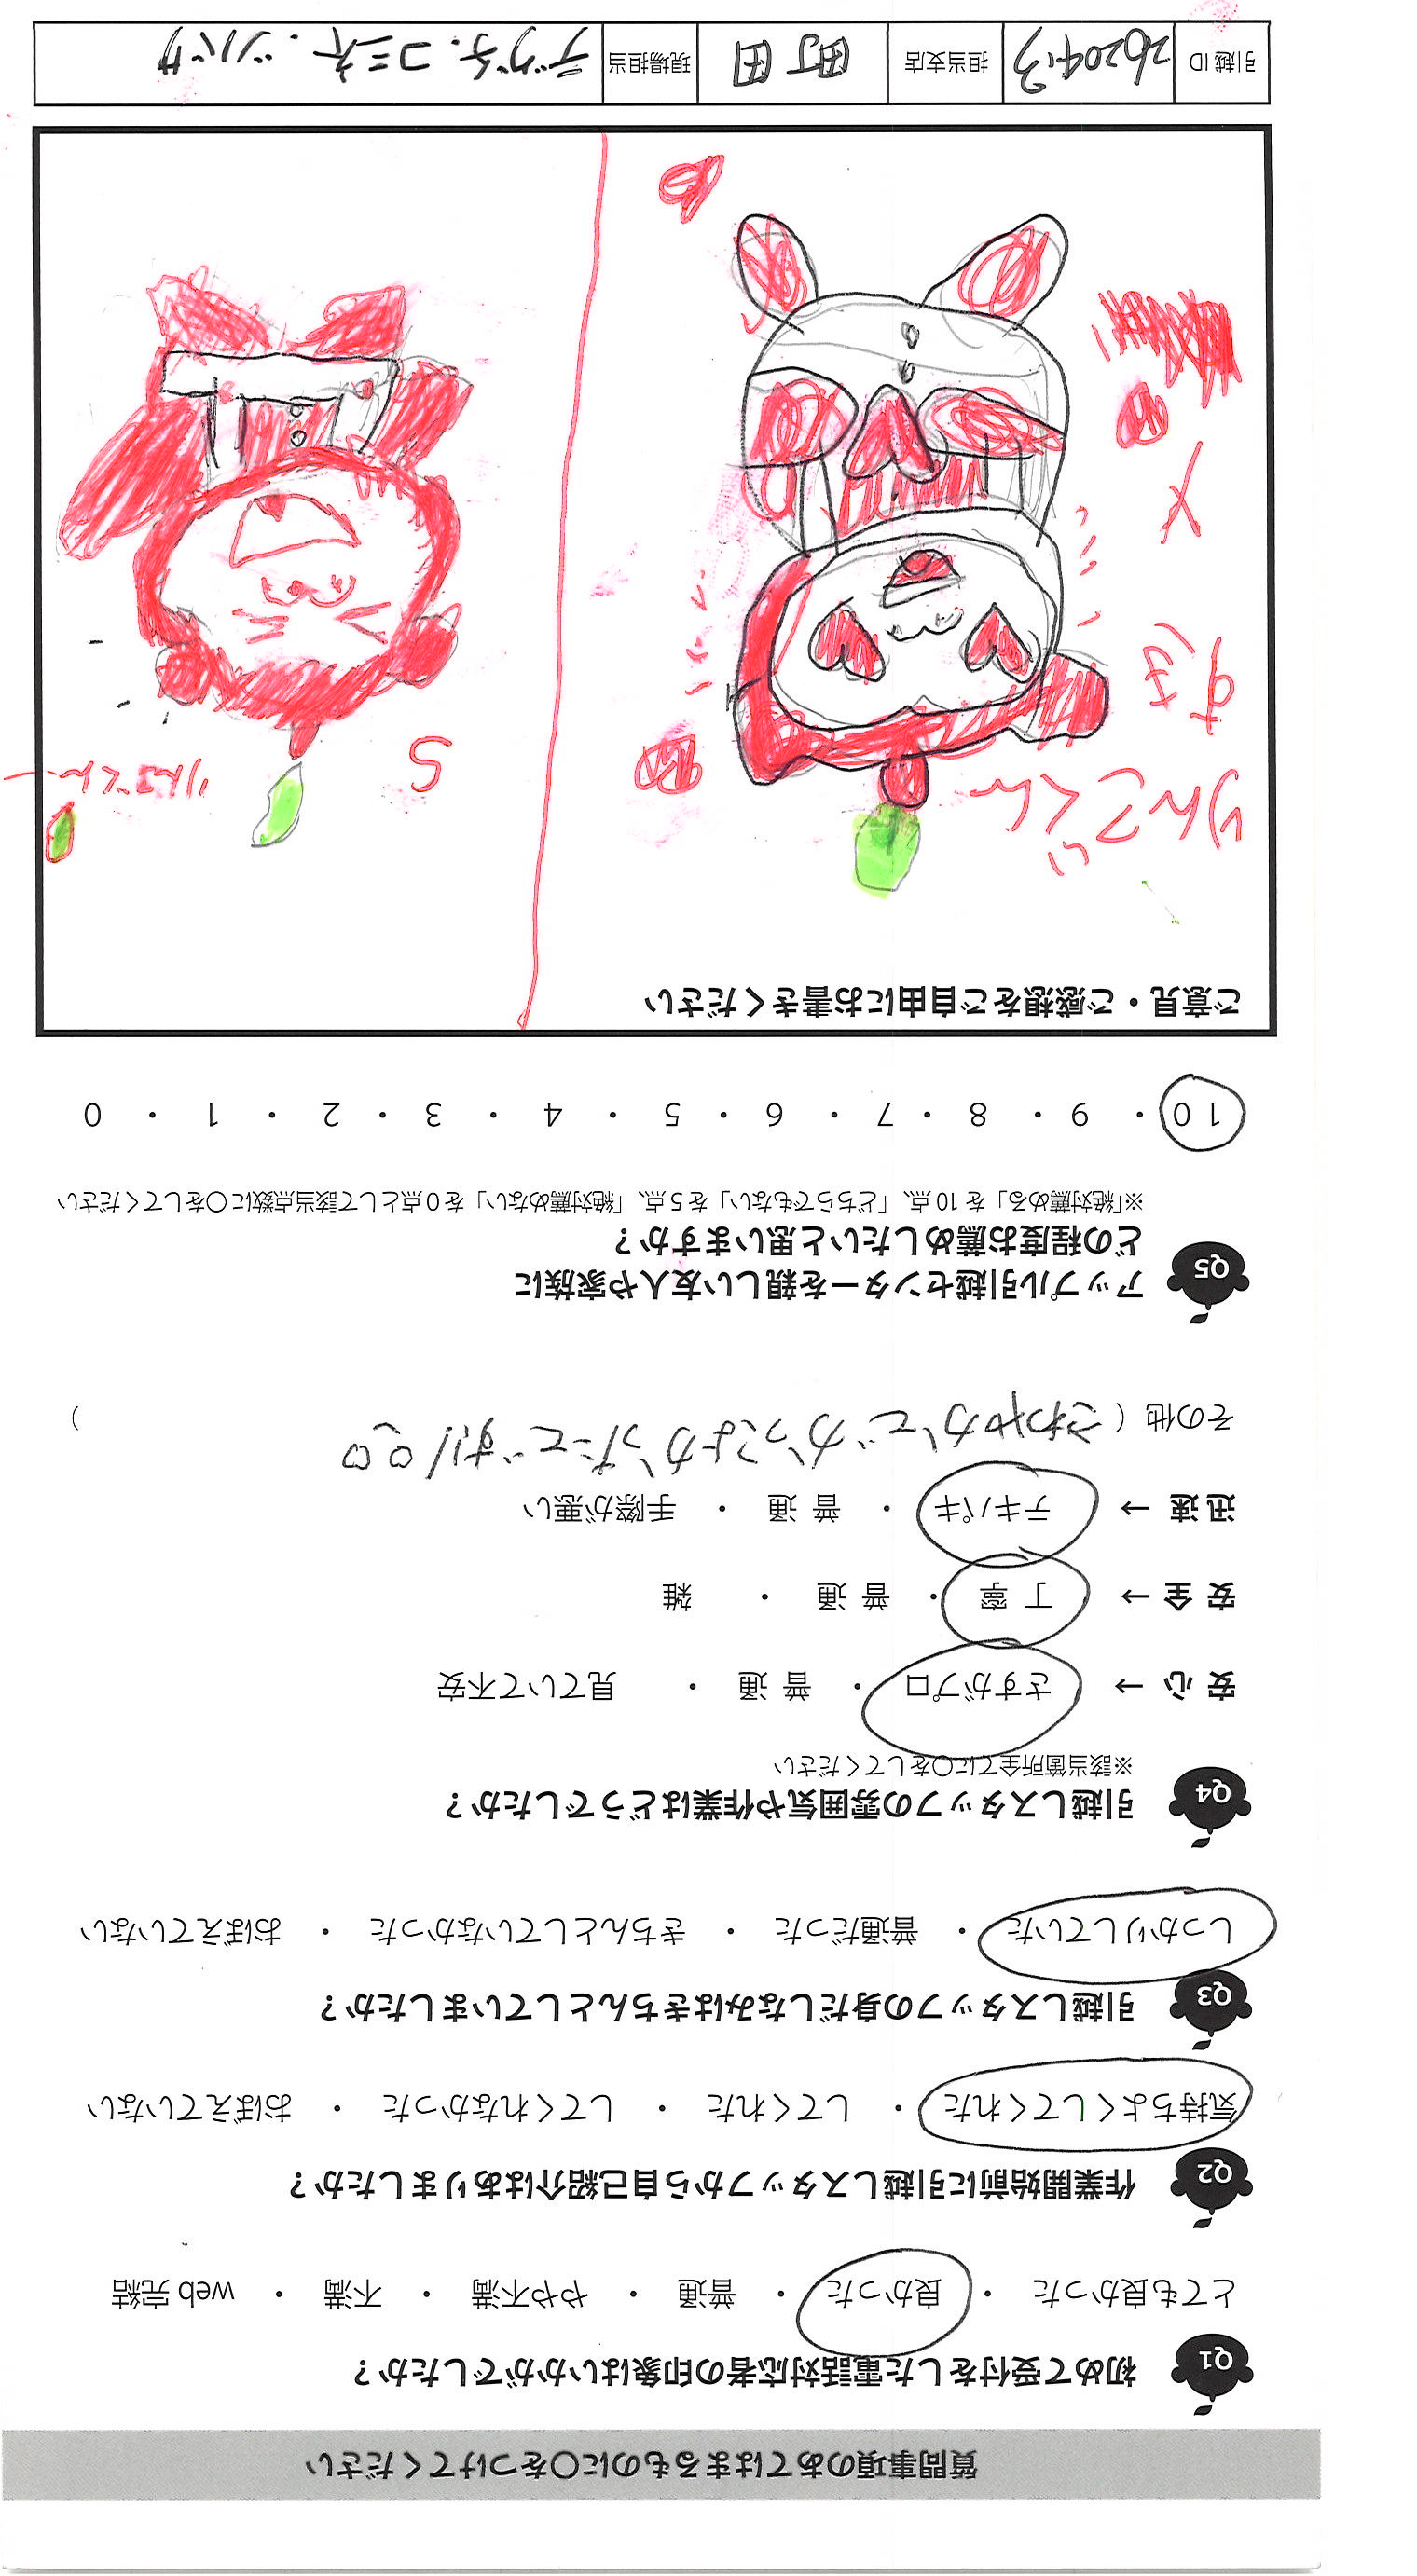 質問事項のあてはまるものに○をつけてください
Q1 初めて受付をした電話対応者の印象はいかがでしたか？
とても良かった ・ 良かった ・ 普通 ・ やや不満 ・ 不満 ・ web 完結
Q2 作業開始前に引越しスタッフから自己紹介はありましたか？
気持ちよくしてくれた ・ してくれた ・ してくれなかった ・ おぼえていない
Q3 引越しスタッフの身だしなみはきちんとしていましたか？
しっかりしていた ・ 普通だった ・ きちんとしていなかった ・ おぼえていない
Q4 引越しスタッフの雰囲気や作業はどうでしたか？
※該当箇所全てに○をしてください
安 心 → さすがプロ ・ 普 通 ・ 見ていて不安
安 全 → 丁 寧 ・ 普 通 ・ 雑
迅 速 → テキパキ ・ 普 通 ・ 手際が悪い
その他（ さわやかで かっこよかったです!! ）
Q5 アップル引越センターを親しい友人や家族に
どの程度お薦めしたいと思いますか？
※「絶対薦める」を 10 点、「どちらでもない」を 5 点、「絶対薦めない」を 0 点として該当点数に○をしてください
10 ・ 9 ・ 8 ・ 7 ・ 6 ・ 5 ・ 4 ・ 3 ・ 2 ・ 1 ・ 0
ご意見・ご感想をご自由にお書きください
りんごくん
すき
S
りんごくん
引越 ID 担当支店 町田 現場担当 デグチ・コミネ・ツバサ